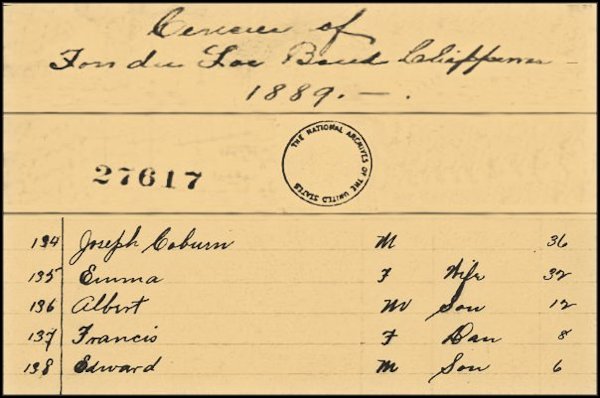 Census of
Fon du Lac Band Chippewa
1889. — .
27617
THE NATIONAL ARCHIVES OF THE UNITED STATES
134 Joseph Coburn M 36
135 Emma F Wife 32
136 Albert M Son 12
137 Francis F Dau 8
138 Edward M Son 6